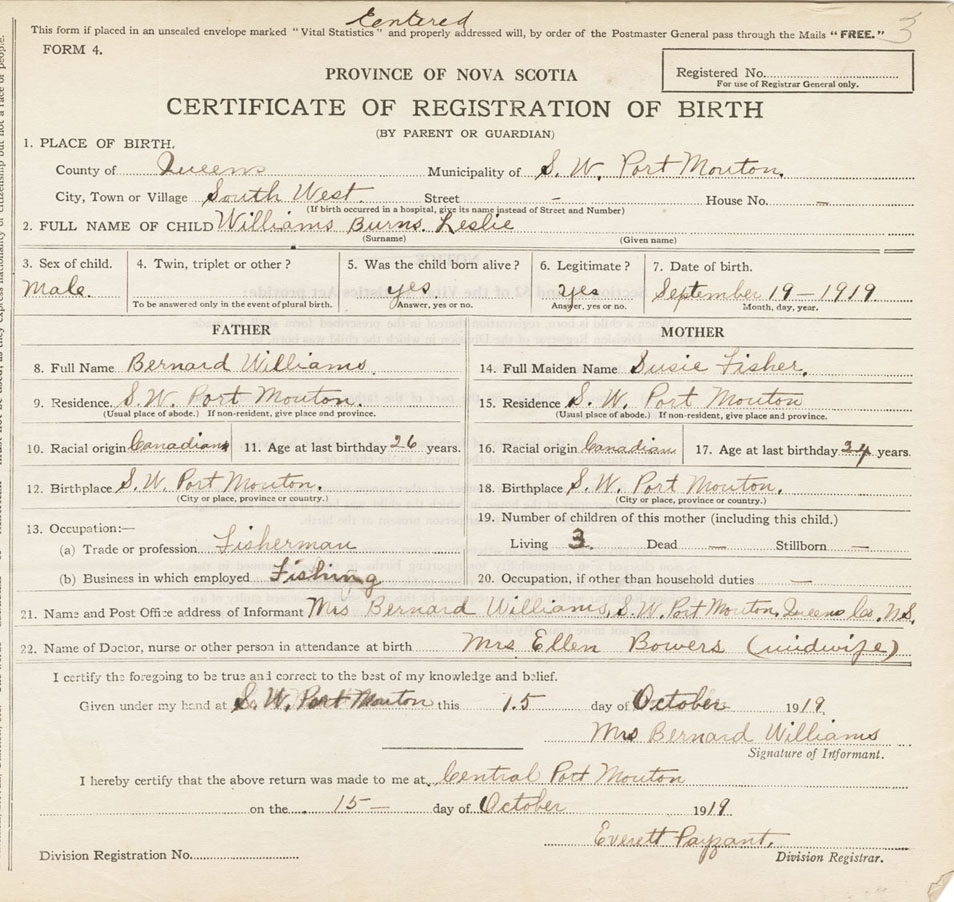 Entered
This form if placed in an unsealed envelope marked "Vital Statistics" and properly addressed will, by order of the Postmaster General pass through the Mails "FREE." 3
FORM 4.
PROVINCE OF NOVA SCOTIA
Registered No.
For use of Registrar General only.
CERTIFICATE OF REGISTRATION OF BIRTH
(BY PARENT OR GUARDIAN)
1. PLACE OF BIRTH.
County of Queens Municipality of S. W. Port Mouton.
City, Town or Village South West Street - House No. -
(If birth occurred in a hospital, give its name instead of Street and Number)
2. FULL NAME OF CHILD Williams Burns. Leslie
(Surname) (Given name)
3. Sex of child. 4. Twin, triplet or other? 5. Was the child born alive? 6. Legitimate? 7. Date of birth.
Male. yes yes September 19-1919.
To be answered only in the event of plural birth. (Answer, yes or no. Answer, yes or no. Month, day, year.
FATHER MOTHER
8. Full Name Bernard Williams. 14. Full Maiden Name Susie Fisher.
9. Residence. S. W. Port Mouton. 15. Residence S. W. Port Mouton
(Usual place of abode.) If non-resident, give place and province. (Usual place of abode.) If non-resident, give place and province.
10. Racial origin Canadian 11. Age at last birthday 26 years. 16. Racial origin Canadian 17. Age at last birthday 24 years.
12. Birthplace S. W. Port Mouton. 18. Birthplace S. W. Port Mouton.
(City or place, province or country.) (City or place, province or country.)
13. Occupation:— 19. Number of children of this mother (including this child.)
(a) Trade or profession Fisherman Living 3. Dead — Stillborn —
(b) Business in which employed Fishing 20. Occupation, if other than household duties —
21. Name and Post Office address of Informant Mrs Bernard Williams, S. W. Port Mouton, Queens Co, N.S.
22. Name of Doctor, nurse or other person in attendance at birth Mrs Ellen Bowers (midwife)
I certify the foregoing to be true and correct to the best of my knowledge and belief.
Given under my hand at S. W. Port Mouton this 15 day of October 1919.
Mrs Bernard Williams
Signature of Informant.
I hereby certify that the above return was made to me at Central Port Mouton
on the 15— day of October 1919
Everett Payzant.
Division Registration No. Division Registrar.